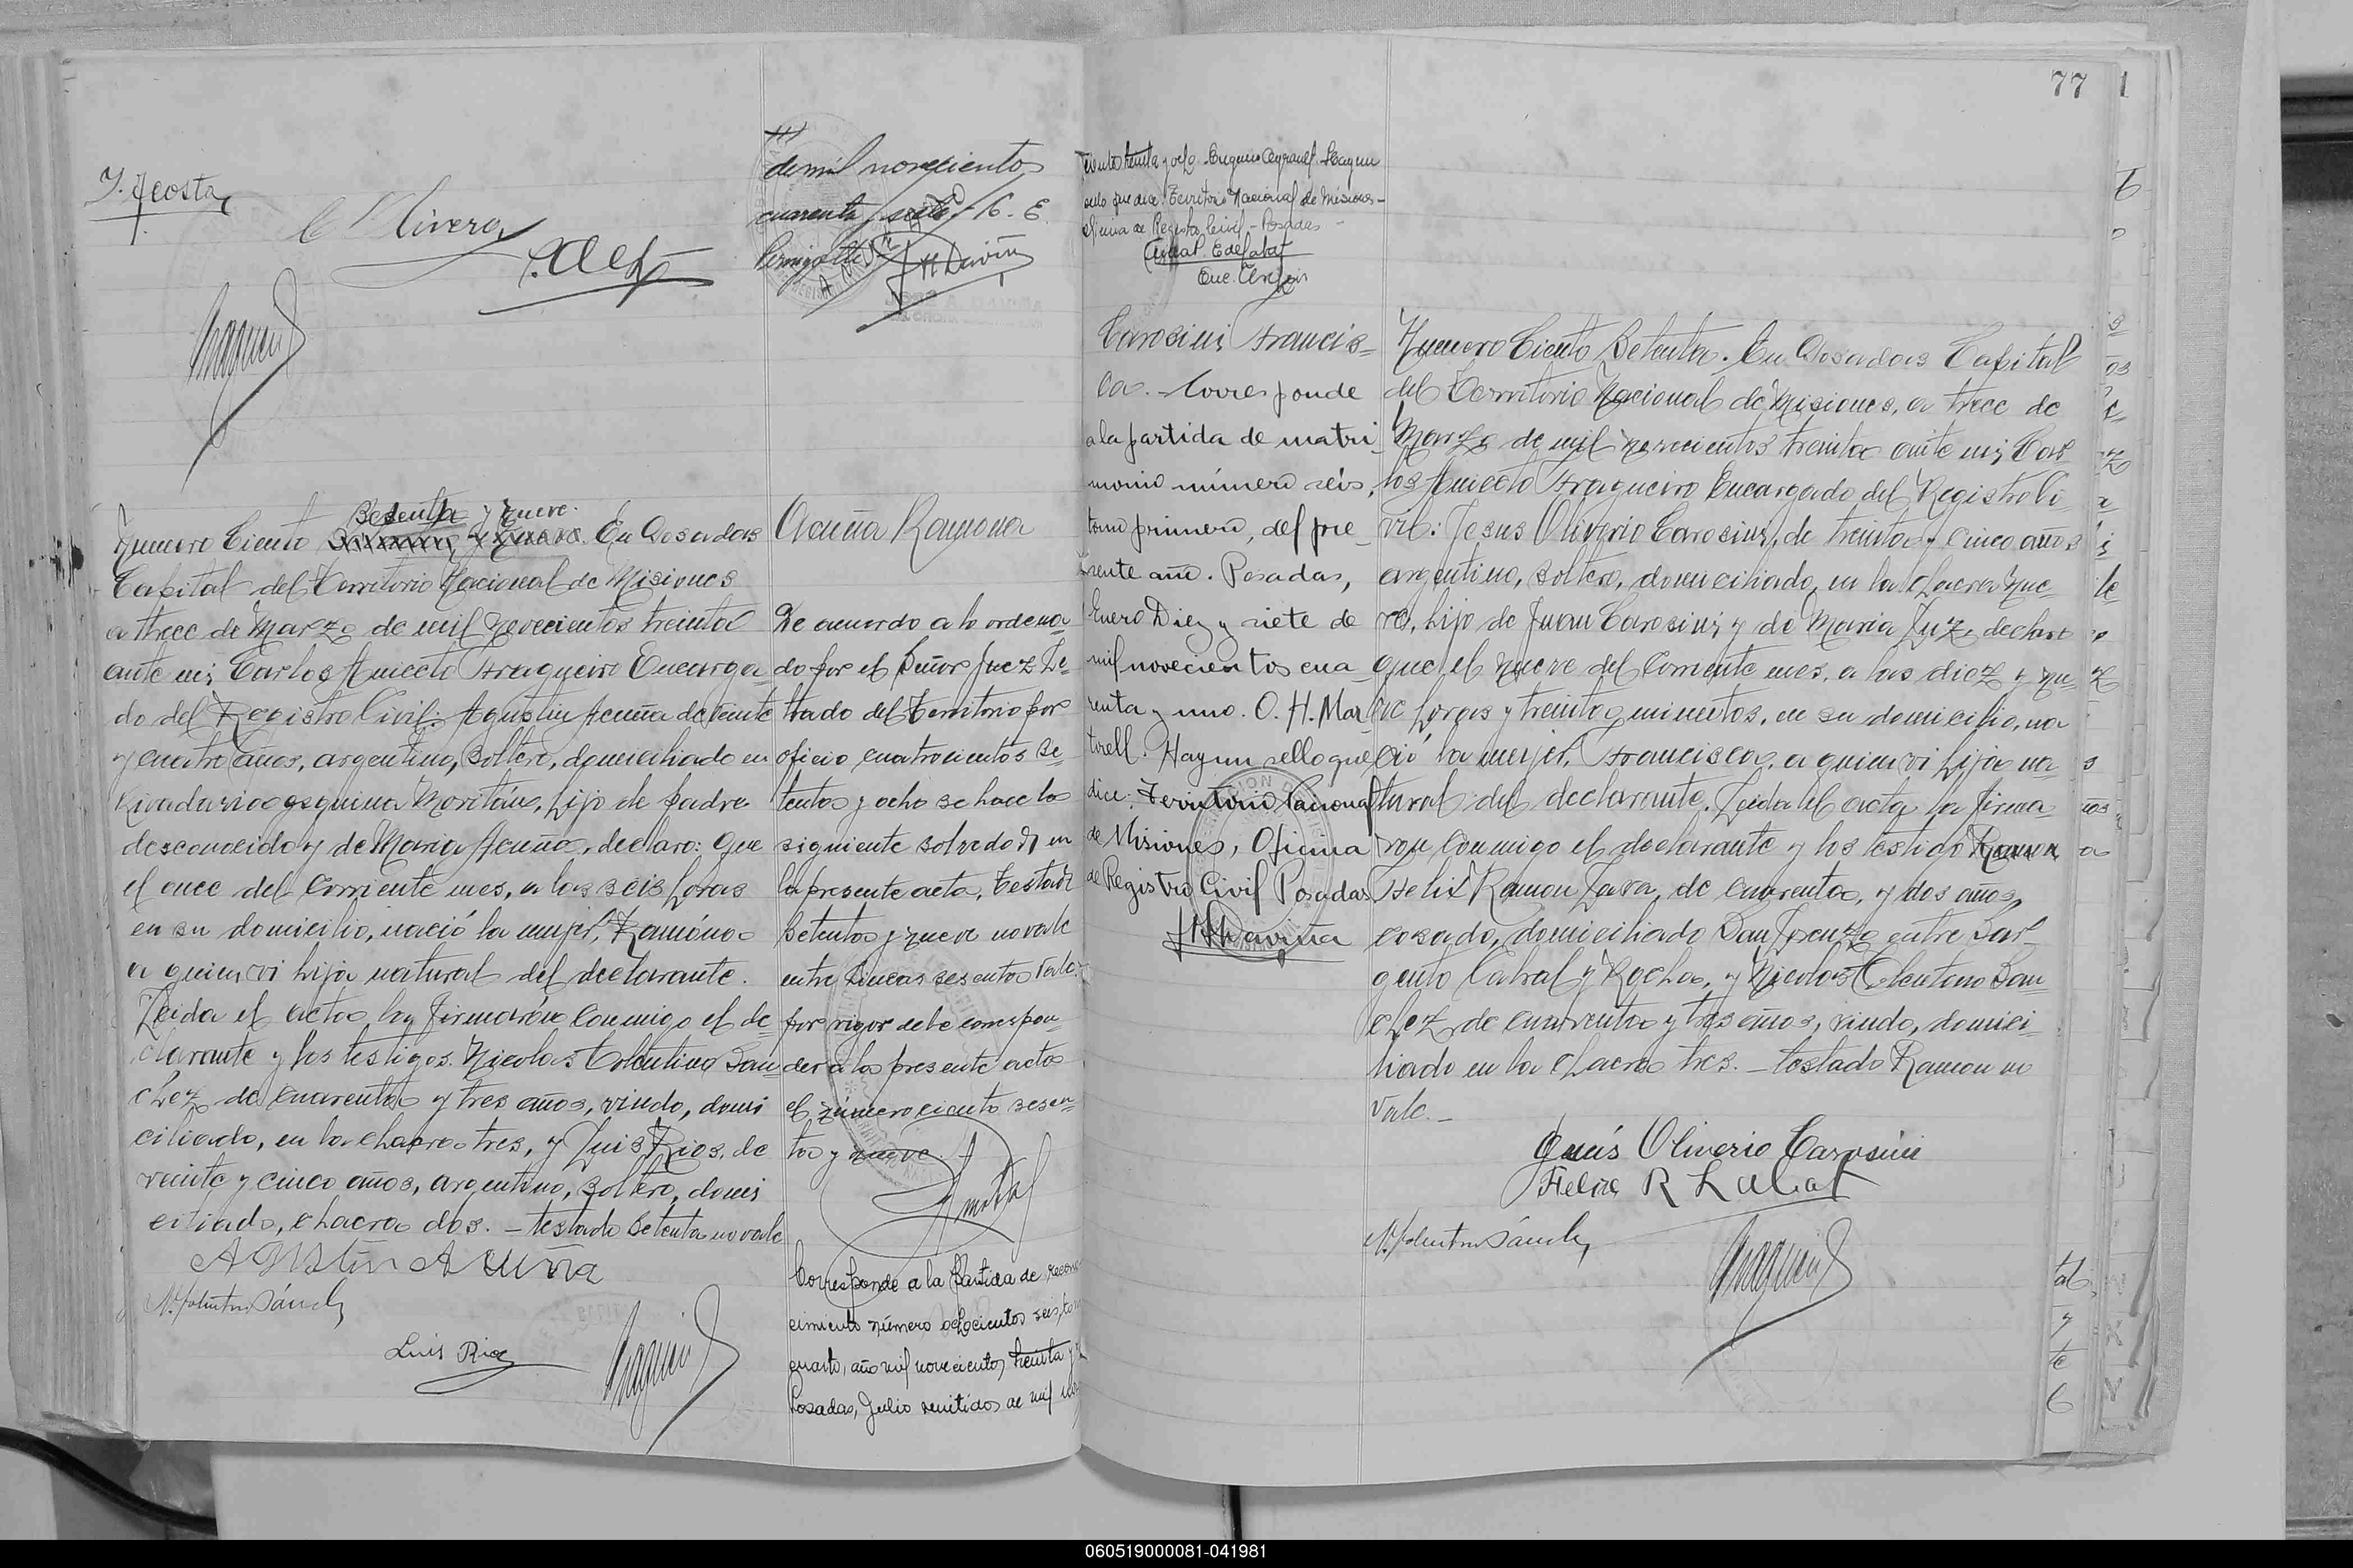 J. Acosta
C Olivera
de mil novecientos
cuarenta y siete - C. E.
Numero Ciento Setenta y Nueve. En Posadas
Capital del Territorio Nacional de Misiones
a trece de Marzo de mil novecientos treinta
ante mi Carlos Aniceto Fragueiro Encarga
do del Registro Civil: Agustin Acuña de veinte
y cuatro años, argentino, soltero, domiciliado en
Rivadavia esquina Moritán, hijo de padre
desconocido y de Maria Acuña, declaro: Que
el once del corriente mes, a las seis horas
en su domicilio, nació la mujer, Ramóna
a quien vi hija natural del declarante.
Leida el acta la firmarón conmigo el de
clarante y los testigos. Nicolas Tolentino San
chez de cuarenta y tres años, viudo, domi
ciliado, en la chacra tres, y Luis Rios, de
veinte y cinco años, argentino, soltero, domi
ciliado, chacra dos. - testado Setenta no vale
AGUStin ACUÑA
N. Tolentino Sánchez
Luis Rios
Acuña Ramona
De acuerdo a lo ordena
do por el Señor Juez Le-
trado del Territorio por
oficio cuatrocientos se-
tenta y ocho se hace la
siguiente salvedad en
la presente acta, testado
setenta y nueve no vale
entre lineas sesenta vale.
por rigor debe correspon-
der a la presente acta
el número ciento sesen-
ta y nueve.
Corresponde a la Partida de recono
cimiento número ochocientos seis, tomo
cuarto, año mil novecientos treinta y
Posadas, Julio veintidos de mil
77
cientos treinta y ocho. Eugenio Hay un
sello que dice: Territorio Nacional de Misiones-
Oficina de Registro Civil - Posadas -
Carosini Francis-
ca. Corresponde
a la partida de matri
monio número seis,
tomo primero, del pre
sente año. Posadas,
Enero Diez y siete de
mil novecientos cua
renta y uno. O. H. Mar
torell. Hay un sello que
dice: Territorio Nacional
de Misiones, Oficina
de Registro Civil Posadas
Numero Ciento Setenta. En Posadas Capital
del Territorio Nacional de Misiones, a trece de
Marzo de mil novecientos treinta ante mi Car
los Aniceto Fragueiro Encargado del Registro Ci
vil: Jesus Oliverio Carosini, de treinta y cinco años
argentino, soltero, domiciliado, en la chacra nue
ve, hijo de Juan Carosini y de Maria Luz, declaro
que el nueve del corriente mes, a las diez y nu
eve horas y treinta minutos, en su domicilio, na
ció la mujer, Francisca, a quien vi hija na
tural del declarante. Leida el acta la firma
ron conmigo el declarante y los testigo Ramon
Felix Ramon Lara, de cuarenta, y dos años,
casado, domiciliado San Lorenzo entre Sar-
gento Cabral y Rocha, y Nicolas Tolentino San
chez, de cuarenta y tres años, viudo, domici-
liado en la chacra tres. - testado Ramon no
vale. -
Jesús Oliverio Carosini
Felix R Labat
N. Tolentino Sánchez
060519000081-041981